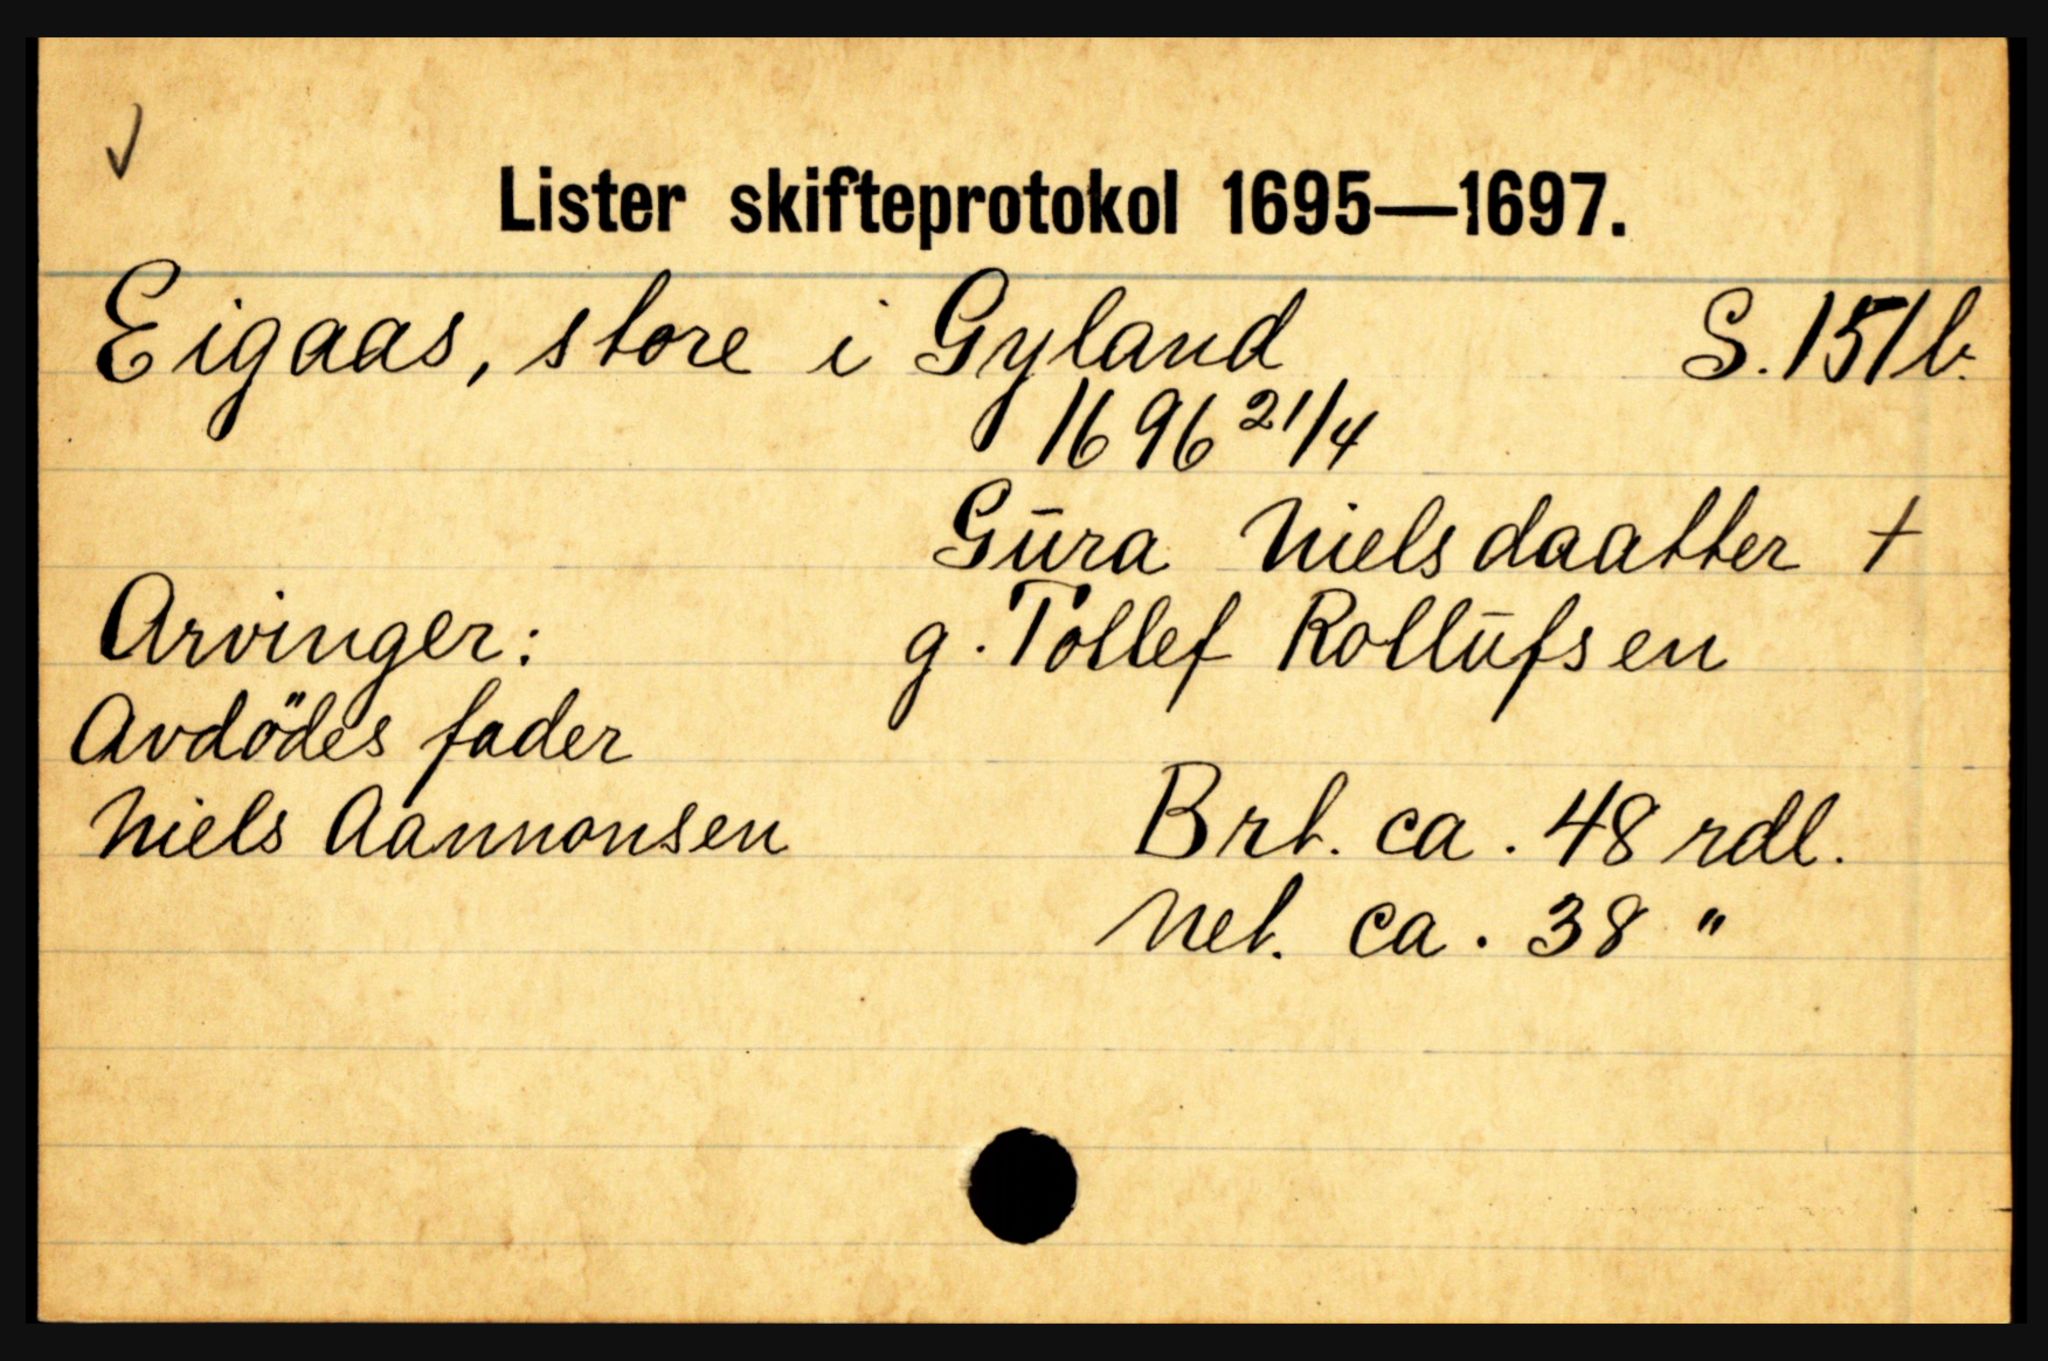 Lister skifteprotokol 1695—1697.
Eigaas, store i Gyland S. 151 b.
1696 21/4
Gūra Nielsdaatter +
g. Tollef Rollūfsen
Arvinger:
Avdödes fader
Niels Aannonsen
Brt. ca. 48 rdl.
Net. ca. 38 "